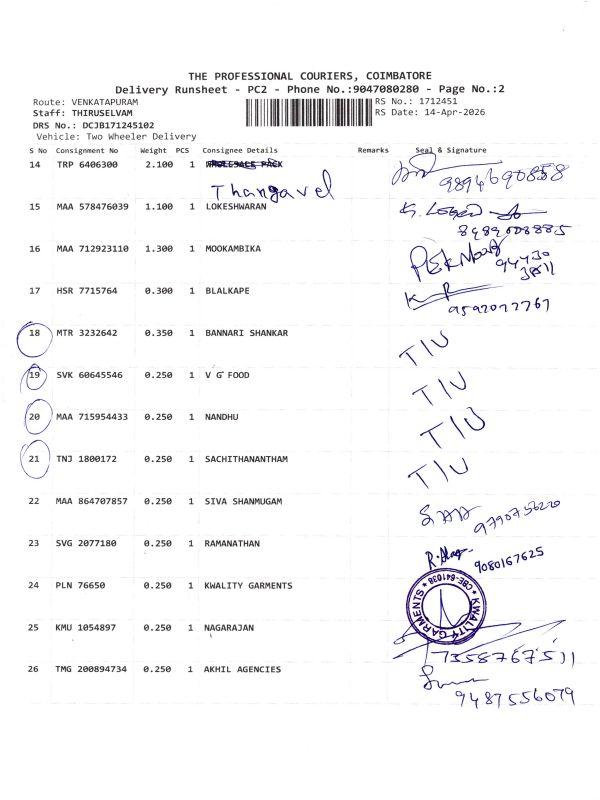 THE PROFESSIONAL COURIERS, COIMBATORE
Delivery Runsheet - PC2 - Phone No.:9047080280 - Page No.:2
Route: VENKATAPURAM RS No.: 1712451
Staff: THIRUSELVAM RS Date: 14-Apr-2026
DRS No.: DCJB171245102
Vehicle: Two Wheeler Delivery
S No Consignment No Weight PCS Consignee Details Remarks Seal & Signature
14 TRP 6406300 2.100 1 WHOLESALE PACK
Thangavel 9894690858
15 MAA 578476039 1.100 1 LOKESHWARAN
8489008885
16 MAA 712923110 1.300 1 MOOKAMBIKA
94430
3811
17 HSR 7715764 0.300 1 BLALKAPE
9592077767
18 MTR 3232642 0.350 1 BANNARI SHANKAR T/U
19 SVK 60645546 0.250 1 V G FOOD T/U
20 MAA 715954433 0.250 1 NANDHU T/U
21 TNJ 1800172 0.250 1 SACHITHANANTHAM T/U
22 MAA 864707857 0.250 1 SIVA SHANMUGAM
9790756220
23 SVG 2077180 0.250 1 RAMANATHAN
9080167625
24 PLN 76650 0.250 1 KWALITY GARMENTS
KWALITY GARMENTS CBE-641038
25 KMU 1054897 0.250 1 NAGARAJAN
7358767511
26 TMG 200894734 0.250 1 AKHIL AGENCIES
9487556079